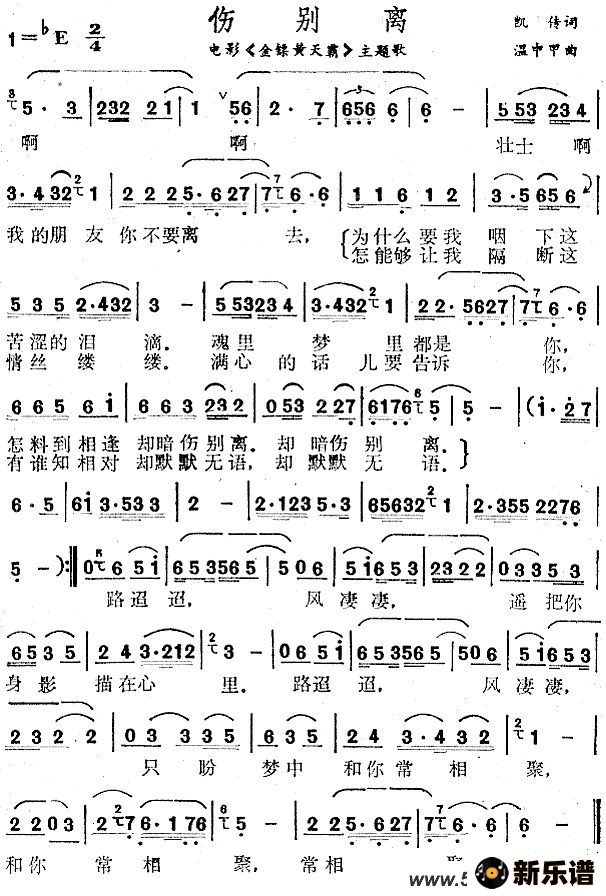 伤别离
1=♭E 2/4
电影《金镖黄天霸》主题歌
凯传词
温中甲曲
5· 3 | 232 21 | 1 56 | 2· 7 | 656 6 | 6 - | 553 234 |
啊 啊 壮士 啊
3·432 1 | 2225·627 | 76·6 | 116 12 | 3·5656 |
我的朋友你不要离去, 为什么要我咽下这
怎能够让我隔断这
535 2·432 | 3 - | 553234 | 3·432 1 | 22·5627 | 76·6 |
苦涩的泪滴。魂里梦里都是你,
情丝缕缕。满心的话儿要告诉你,
665 61 | 663 232 | 053 227 | 6176 5 | 5 - | (1·27 |
怎料到相逢却暗伤别离。却暗伤别离。
有谁知相对却默默无语,却默默无语。
6·5 | 61 3·533 | 2 - | 2·1235·3 | 65632 1 | 2·355 2276 |
5 - ):‖ 0 6 51 | 653565 | 506 | 51653 | 2322 | 03353 |
路迢迢, 风凄凄, 遥把你
653 5 | 24 3·212 | 3 - | 06 51 | 653565 | 506 | 51653 |
身影描在心里。路迢迢, 风凄凄,
232 2 | 03 335 | 635 | 24 3·432 | 1 - |
只盼梦中和你常相聚,
2203 | 2 7 6·176 | 5 - | 2·25·627 | 76·6 | 6 - |
和你常相聚,常相
www.5
新乐谱